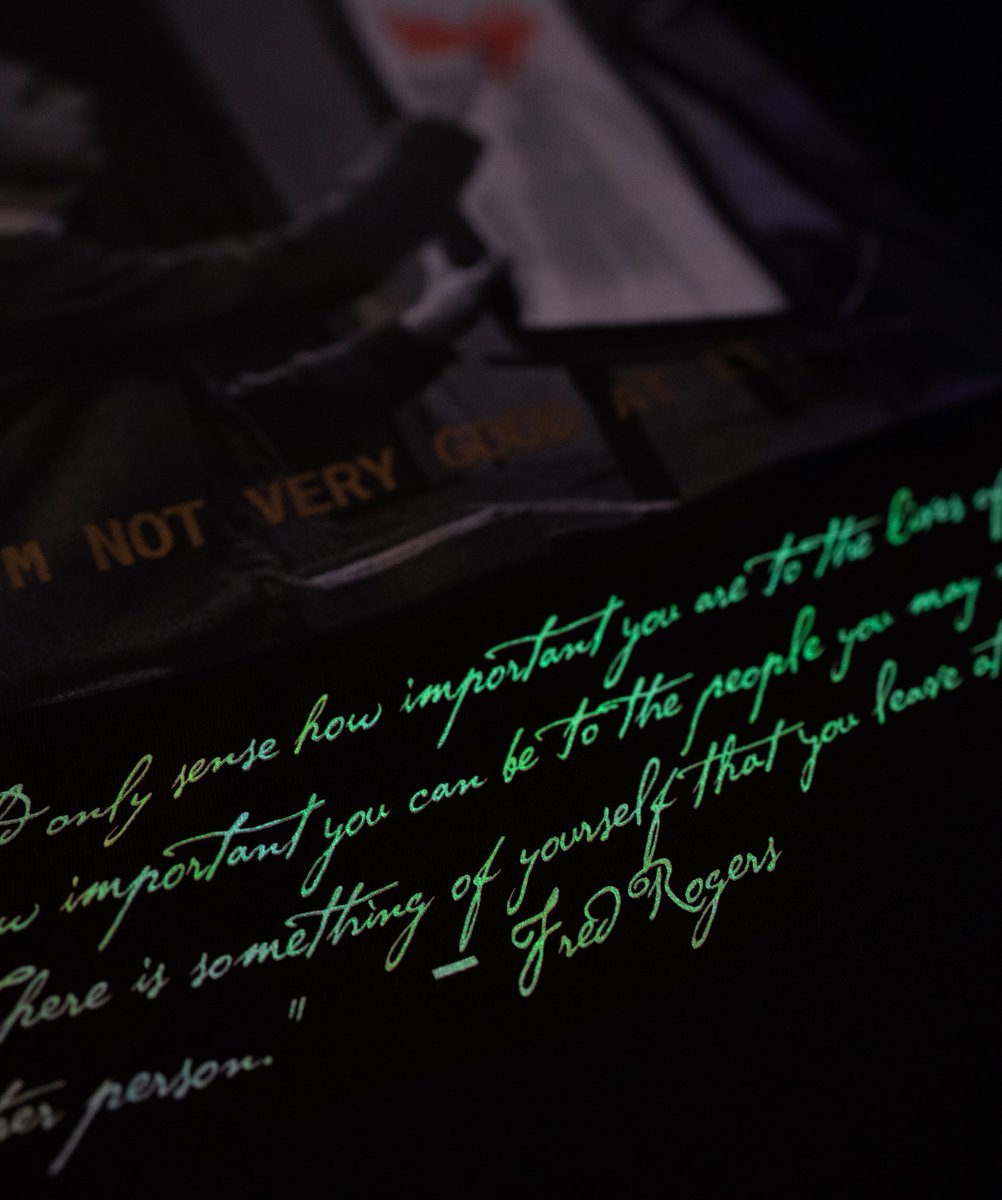 M NOT VERY GOOD AT
only sense how important you are to the lives of
important you can be to the people you may
here is something of yourself that you leave at
person."
— Fred Rogers